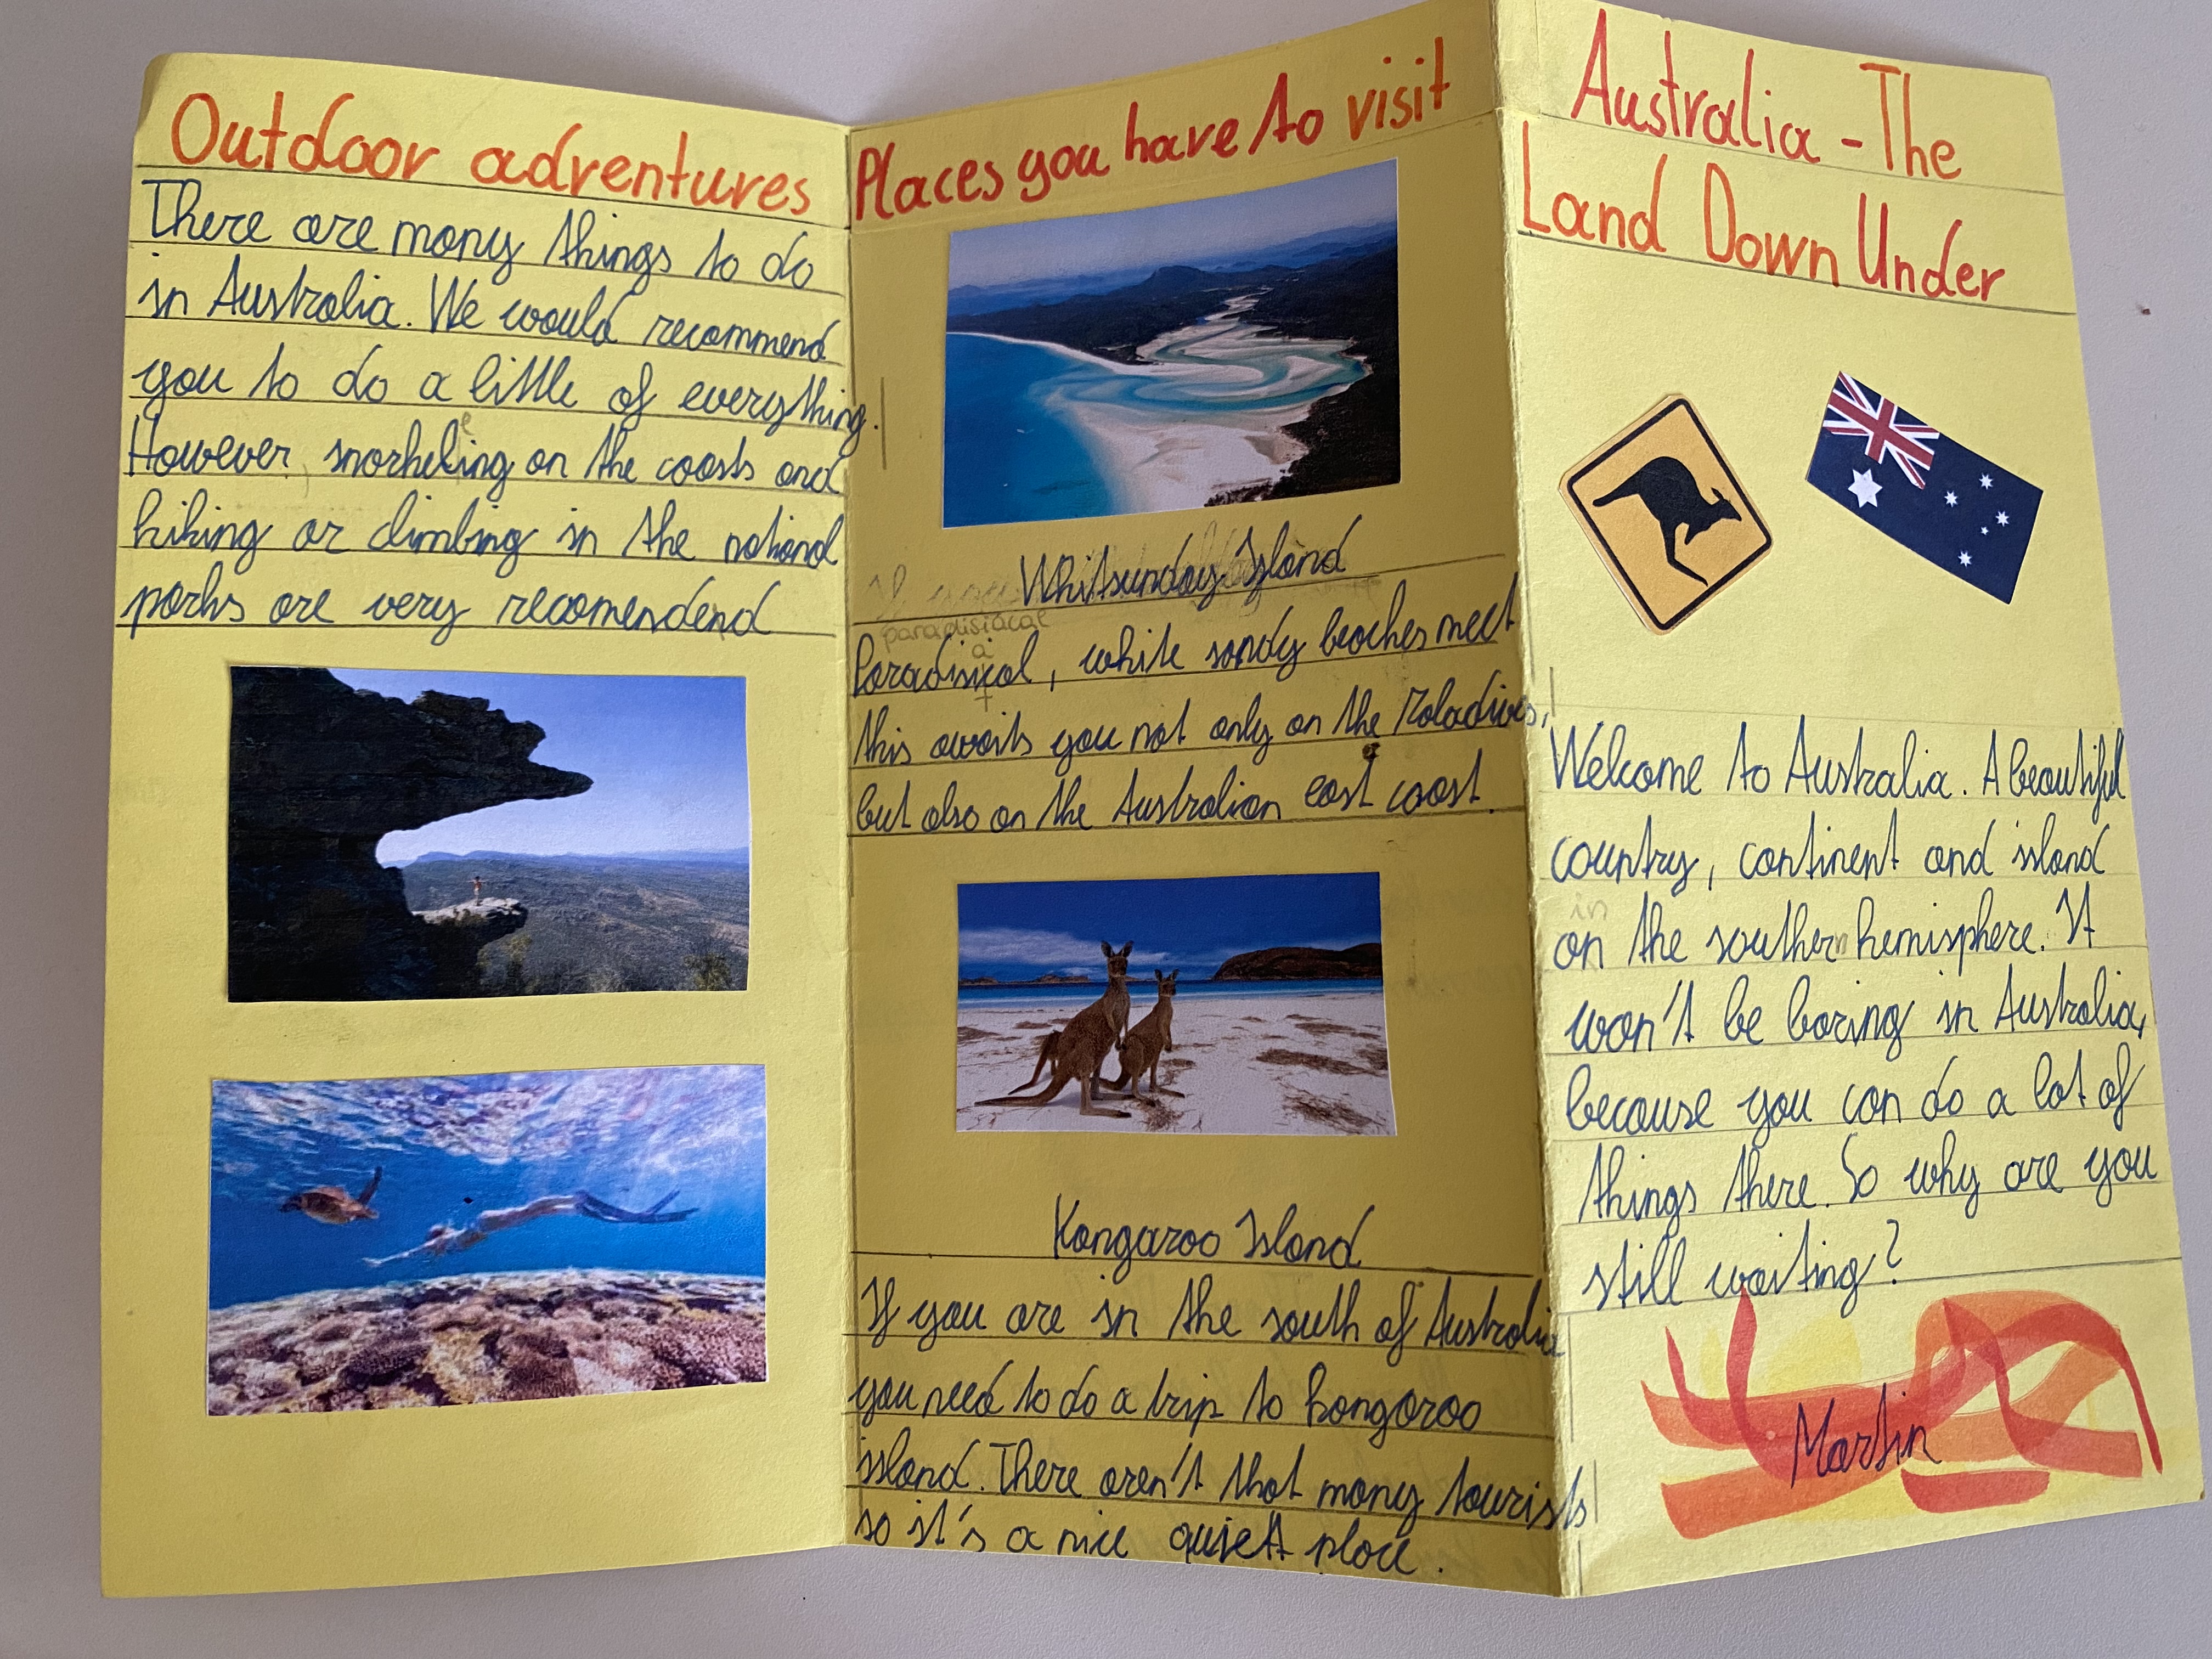 Outdoor adventures
There are many things to do
in Australia. We would recommend
you to do a little of everything.
e
However, snorkeling on the coasts and
hiking or climbing in the national
parks are very recomendend
Places you have to visit
If you
Whitsunday Island
paradisiacal
a
Paradisical, white sandy beaches meet
this awaits you not only on the Maladives,
but also on the Australian east coast.
Kangaroo Island
If you are in the south of Australia
you need to do a trip to kangaroo
island. There aren't that many tourists
so it's a nice quiet place.
Australia - The
Land Down Under
Welcome to Australia. A beautiful
country, continent and island
in
on the southern hemisphere. It
won't be boring in Australia,
because you can do a lot of
things there. So why are you
still waiting?
Martin